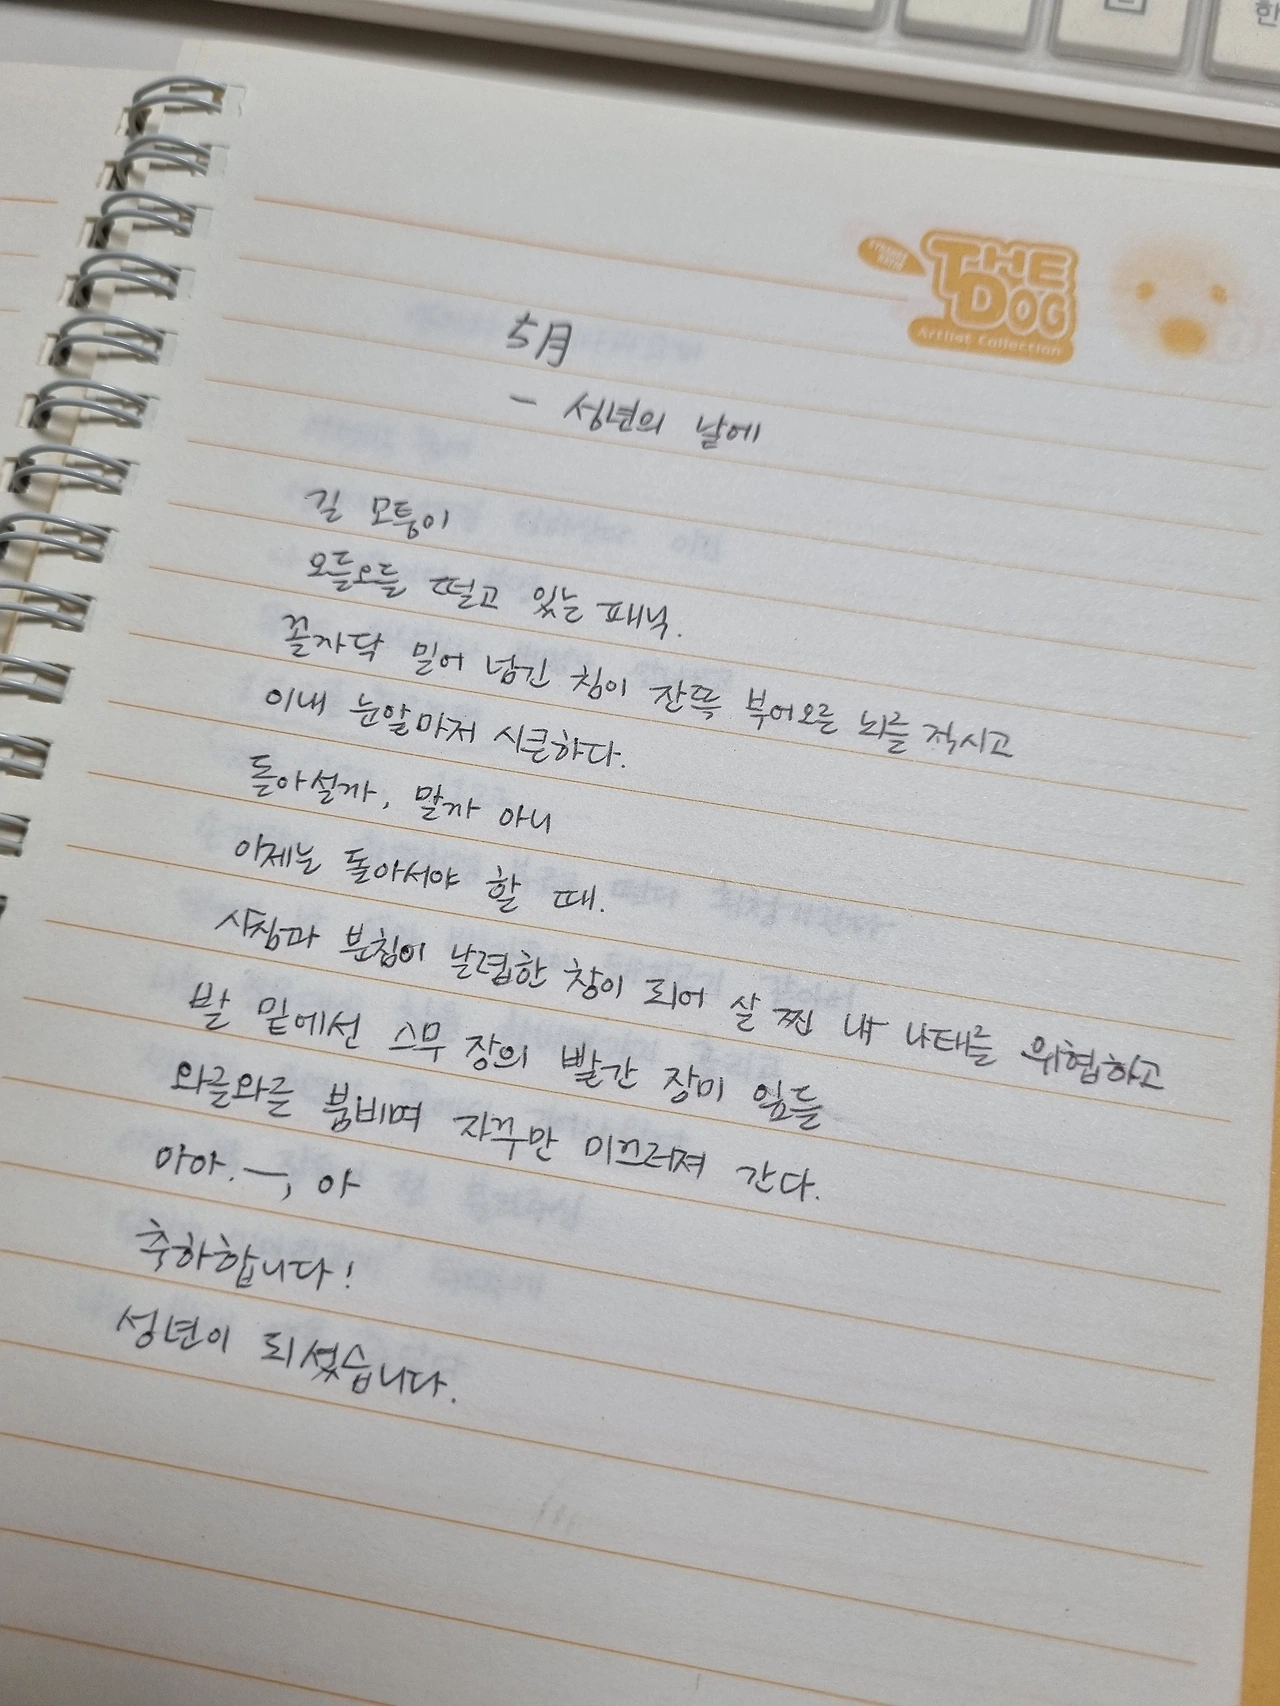 한
THE
DOG
Artlist Collection
5月
- 성년의 날에
길 모퉁이
오들오들 떨고 있는 패닉.
꼴까닥 밀어 넘긴 침이 잔뜩 부어오른 뇌를 적시고
이내 눈알마저 시큰하다.
돌아설까, 말까 아니
이제는 돌아서야 할 때.
시침과 분침이 날렵한 창이 되어 살 찐 내 나태를 위협하고
발 밑에선 스무 장의 빨간 장미 잎들
와글와글 붐비며 자꾸만 미끄러져 간다.
아아.—, 아
축하합니다!
성년이 되셨습니다.